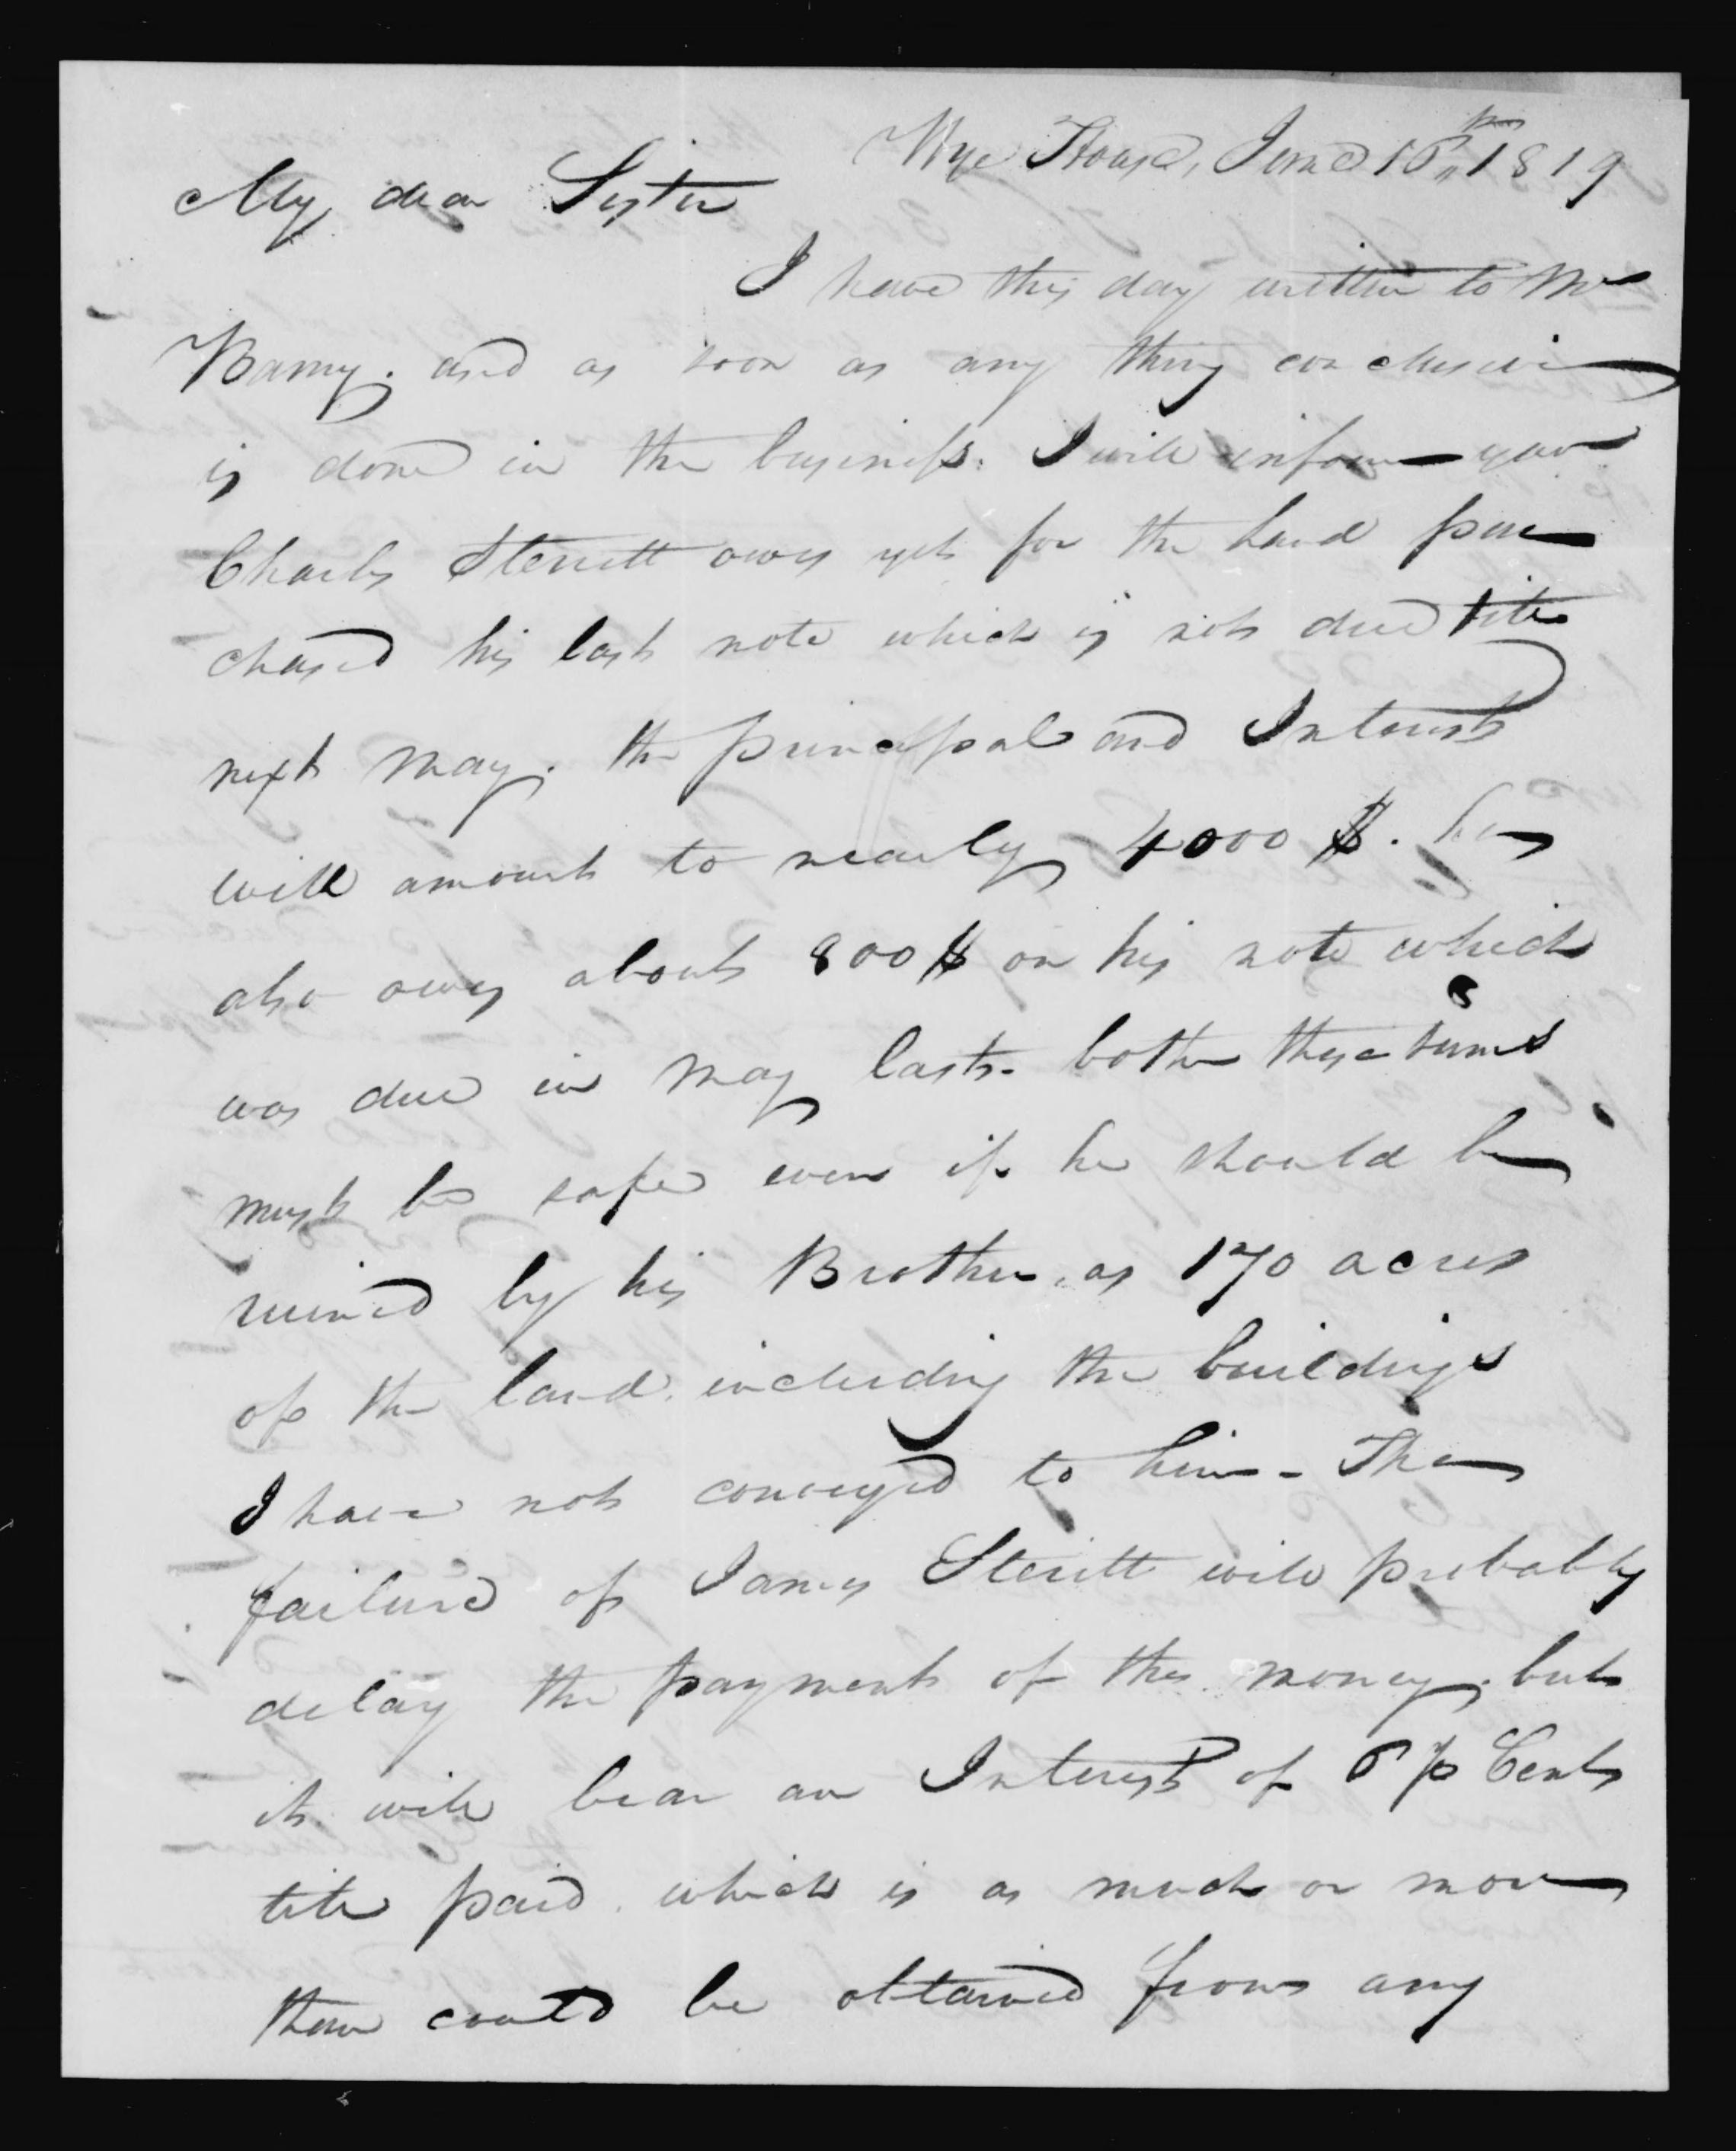 Wye House, June 16th 1819
My dear Sister
I have this day written to Mr
Barny. and as soon as any thing conclusive
is done in the business. I will inform you
Charles Sterett owes yet for the land pur
chased his last note which is not due till
next May. the principal and Interest
will amount to nearly 4000 $. he
also owes about 800 $ on his note which
was due in May last. both these sums
must be safe even if he should be
ruined by his Brother. as 170 acres
of the land. including the buildings
I have not conveyed to him - The
failure of James Sterett will probably
delay the payment of this money. but
it will bear an Interest of 6 p Cent
till paid. which is as much or more
than could be obtained from any